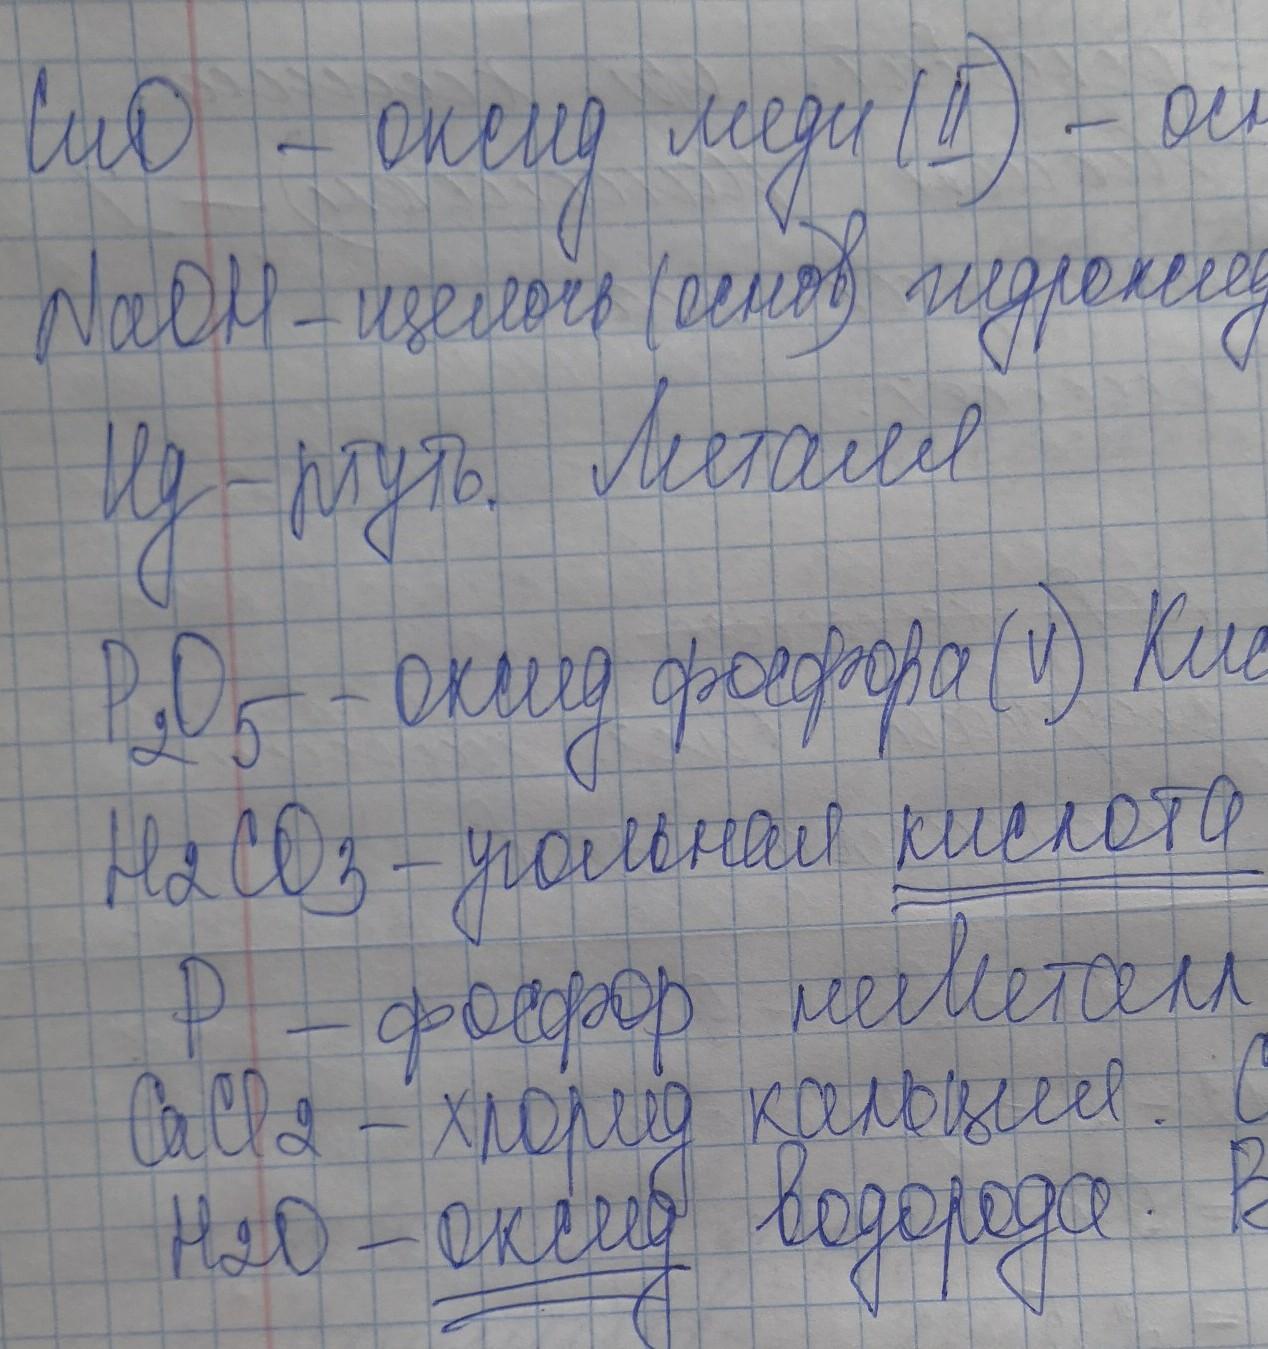 CuO - оксид меди (II) - осн
NaOH - щелочь (основ) гидроксид
Hg - ртуть. Металл
P2O5 - оксид фосфора (V) Кис
H2CO3 - угольная кислота
P - фосфор неметалл
CaCl2 - хлорид кальция. С
H2O - оксид водорода. В